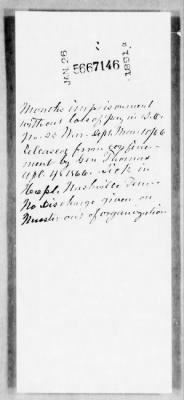 JAN. 26
5667146
1891
Months imprisonment
without loss of pay in S.O.
No. 22 War. Dept. Mar 10/66
Released from confine-
ment by Gen Thomas
Apl. 4, 1866. Sick in
Hospl. Nashville Tenn
No Discharge given on
Muster out of organization